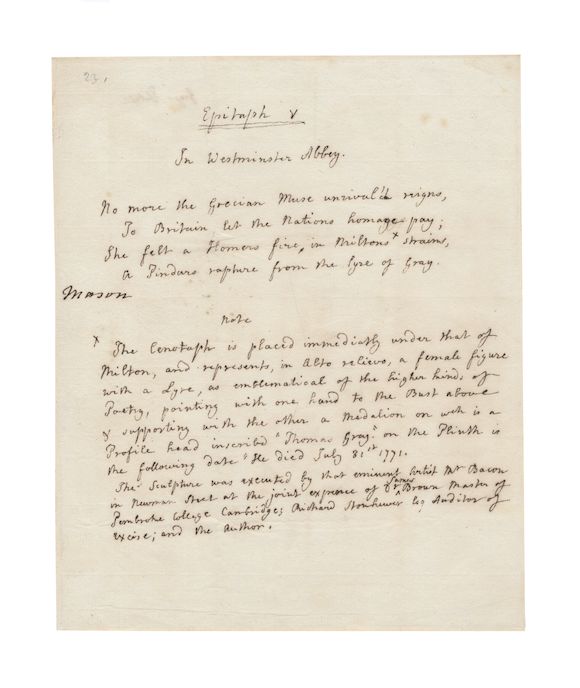 23.
Epitaph
In Westminster Abbey.
No more the Grecian Muse unrival'd reigns,
To Britain let the Nations homage pay;
She felt a Homers fire, in Miltons x strains,
A Pindars rapture from the Lyre of Gray.
Mason
Note
x The Cenotaph is placed immediately under that of
Milton, and represents, in Alto relievo, a female figure
with a Lyre, as emblematical of the higher kinds of
Poetry, pointing with one hand to the Bust above
& supporting with the other a Medalion on wch is a
Profile head inscribed "Thomas Gray." on the Plinth is
the following date "He died July 31st 1771.
The Sculpture was executed by that eminent Artist Mr Bacon
in Newman Street at the joint expence of Dr James Brown Master of
Pembroke College Cambridge; Richard Stonhewer Esq Auditor of
Excise; and the Author.